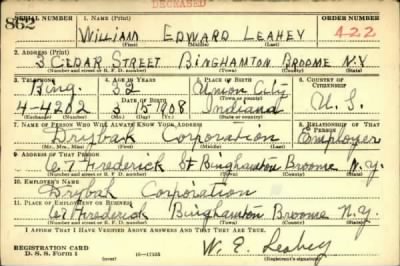 DECEASED
SERIAL NUMBER 1. NAME (Print) ORDER NUMBER
862 WILLIAM EDWARD LEAHEY 422
(First) (Middle) (Last)
2. ADDRESS (Print)
3 CEDAR STREET BINGHAMTON BROOME N.Y
(Number and street or R. F. D. number) (Town) (County) (State)
3. TELEPHONE 4. AGE IN YEARS 5. PLACE OF BIRTH 6. COUNTRY OF CITIZENSHIP
Bing. 32 Union City
DATE OF BIRTH (Town or county)
4-4202 3 15 1908 Indiana U. S.
(Mo.) (Day) (Yr.) (State or country)
7. NAME OF PERSON WHO WILL ALWAYS KNOW YOUR ADDRESS 8. RELATIONSHIP OF THAT PERSON
Drybak Corporation Employer
(Mr., Mrs., Miss) (First) (Middle) (Last)
9. ADDRESS OF THAT PERSON
Frederick St Binghamton Broome N.Y.
(Number and street or R. F. D. number) (Town) (County) (State)
10. EMPLOYER'S NAME
Drybak Corporation
11. PLACE OF EMPLOYMENT OR BUSINESS
Frederick Binghamton Broome N.Y.
(Number and street or R. F. D. number) (Town) (County) (State)
I AFFIRM THAT I HAVE VERIFIED ABOVE ANSWERS AND THAT THEY ARE TRUE.
REGISTRATION CARD
D. S. S. Form 1 (over) 16—17105 W. E. Leahey
(Registrant's signature)